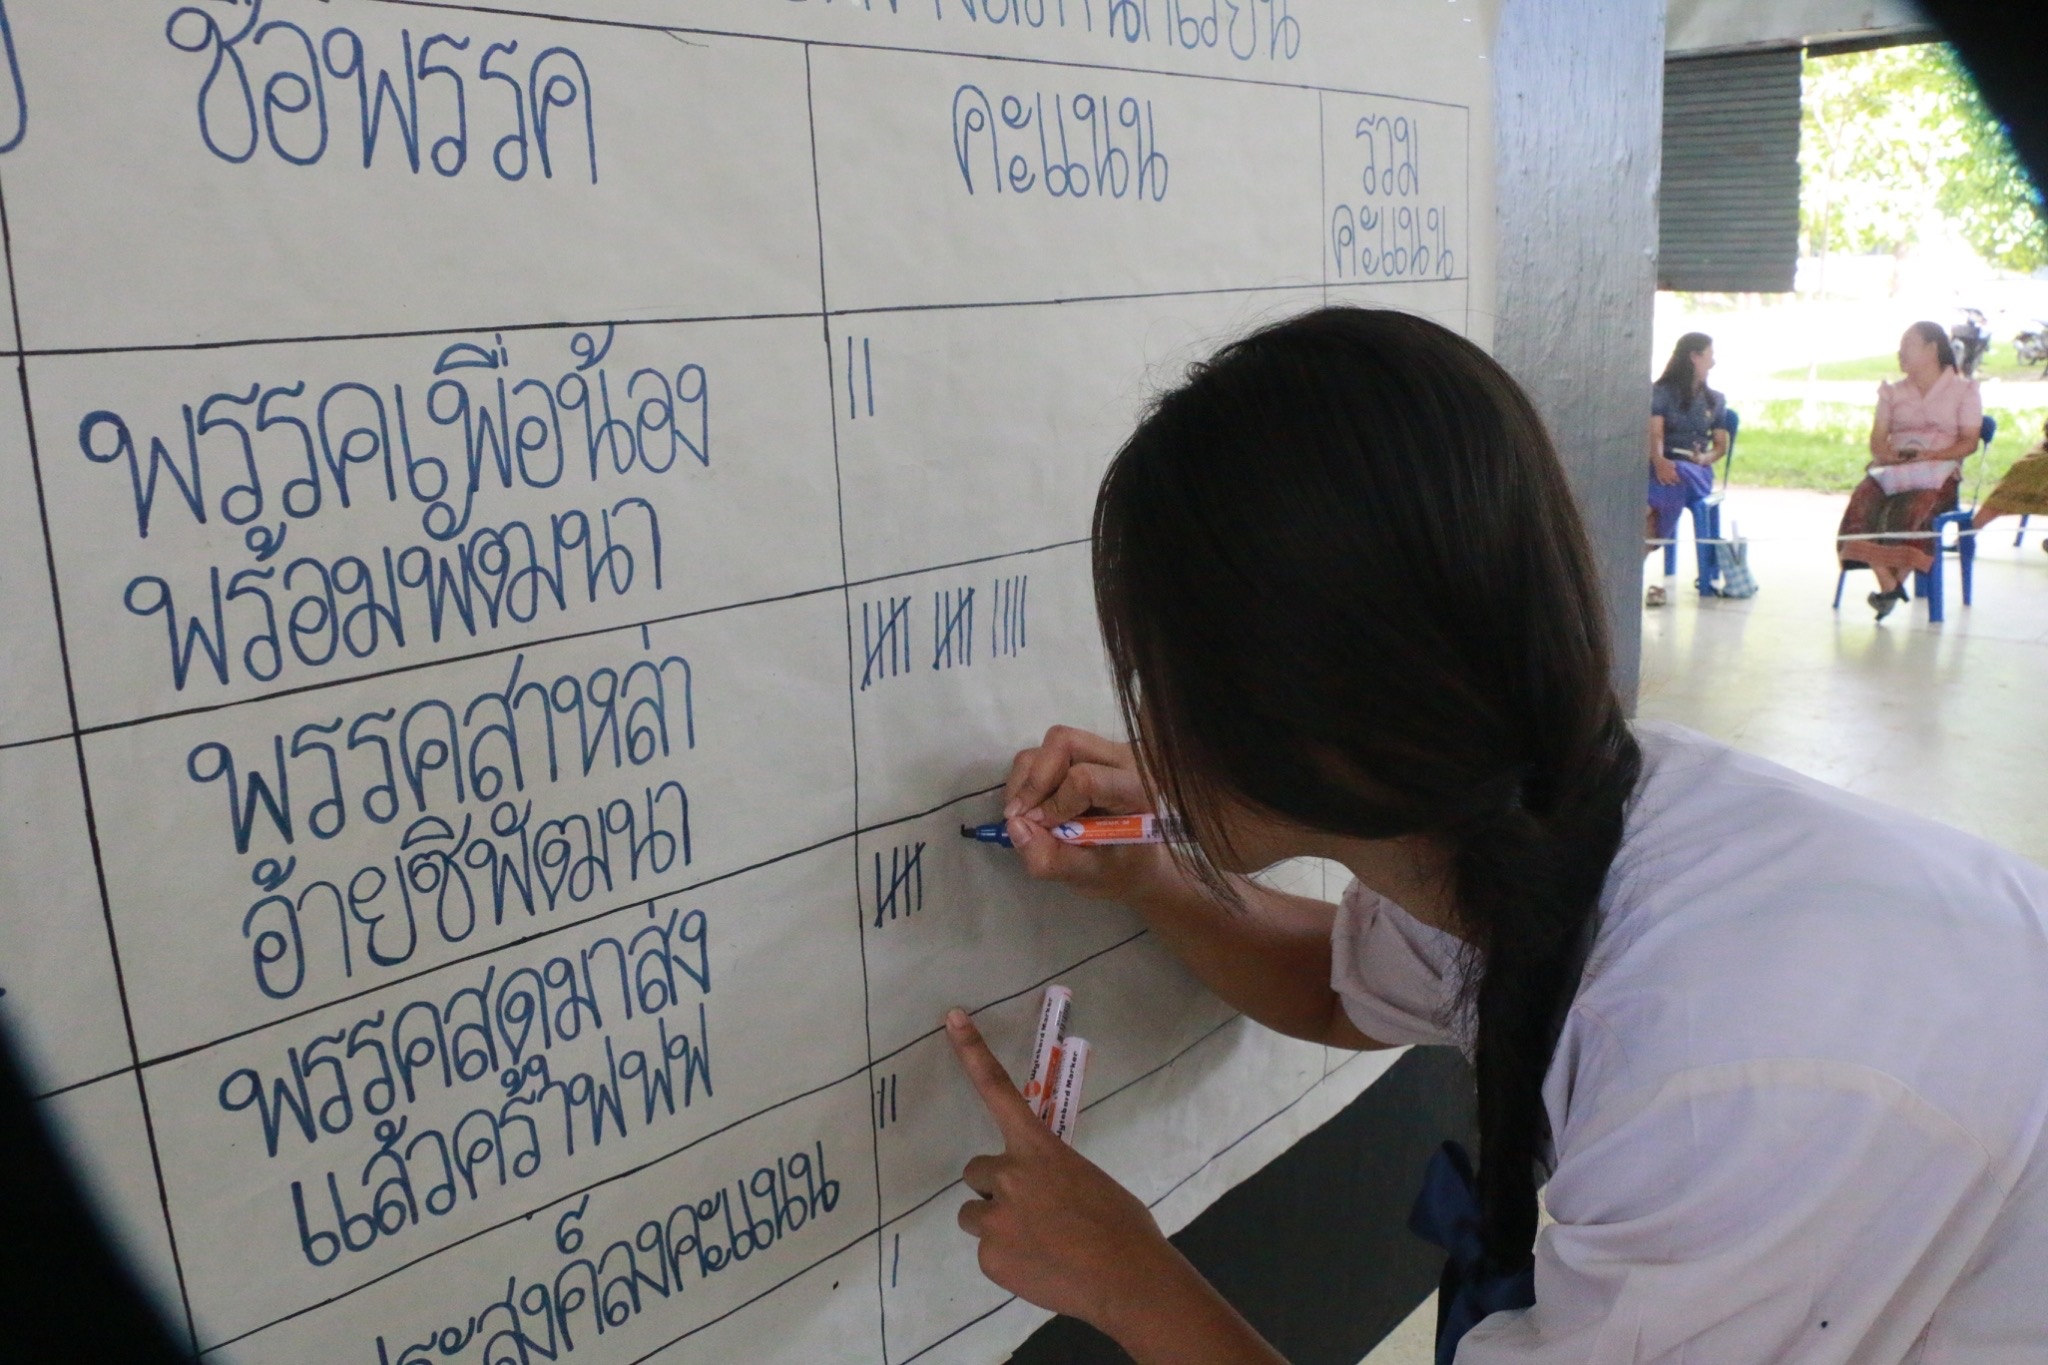 ชื่อพรรค
คะแนน
รวม
คะแนน
พรรคเพื่อน้อง
พร้อมพัฒนา
พรรคสาหล่า
อ้ายซีพัฒนา
พรรคสุดมาส่ง
แล้วคร้าฟฟฟ
ประสงค์ลงคะแนน
Wytebord Marker
Wytebord Marker